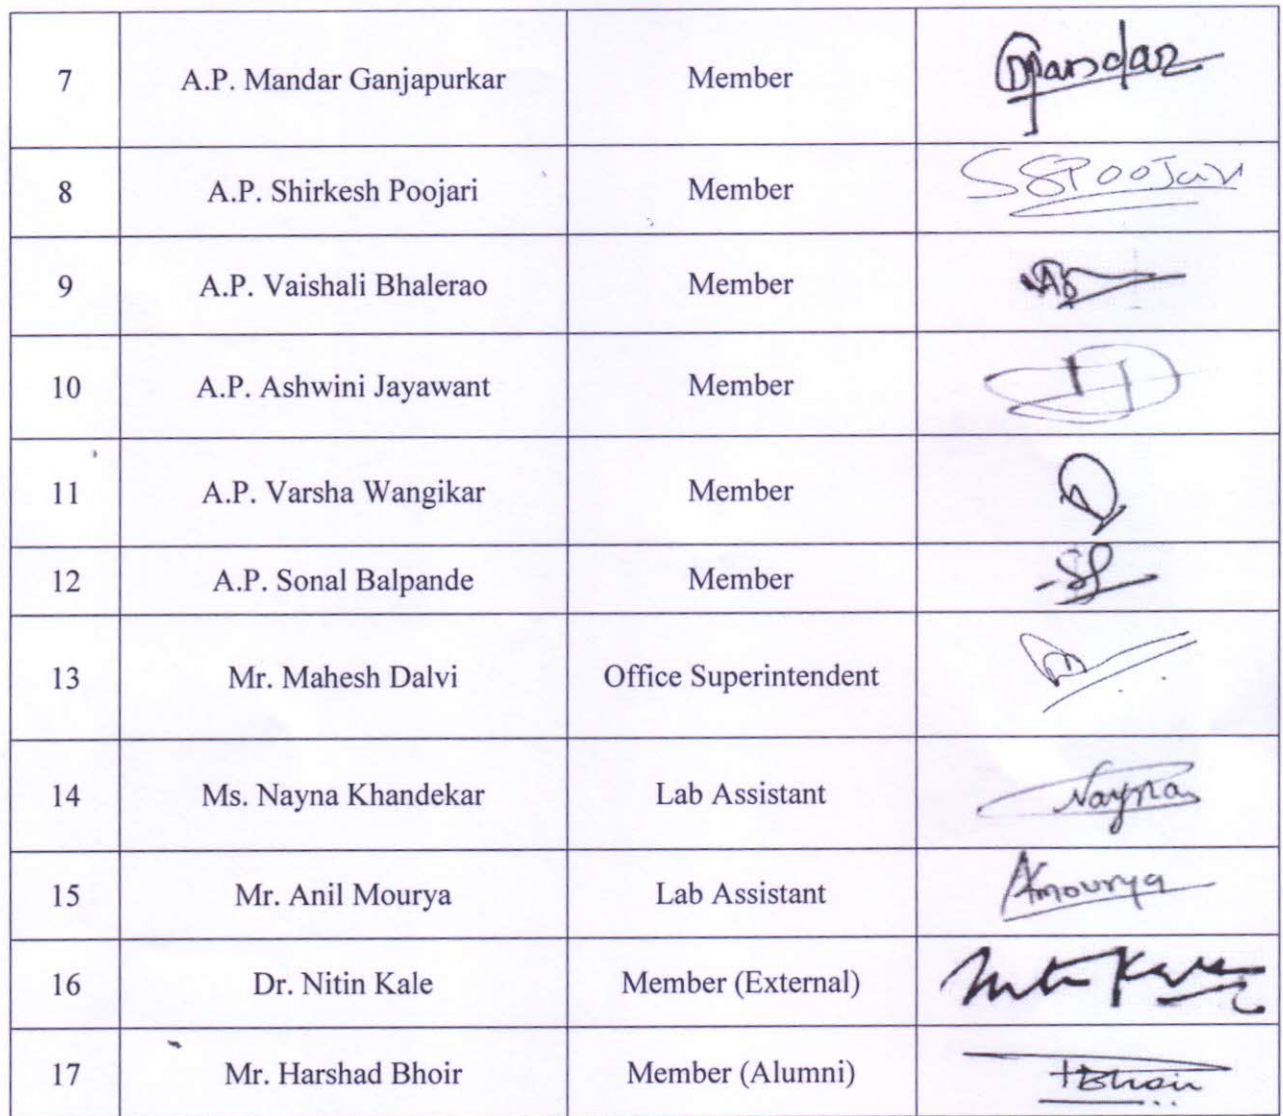 7 A.P. Mandar Ganjapurkar Member Mandar
8 A.P. Shirkesh Poojari Member SSPoojari
9 A.P. Vaishali Bhalerao Member
10 A.P. Ashwini Jayawant Member
11 A.P. Varsha Wangikar Member
12 A.P. Sonal Balpande Member
13 Mr. Mahesh Dalvi Office Superintendent
14 Ms. Nayna Khandekar Lab Assistant Nayna
15 Mr. Anil Mourya Lab Assistant Amourya
16 Dr. Nitin Kale Member (External)
17 Mr. Harshad Bhoir Member (Alumni) HBhoir